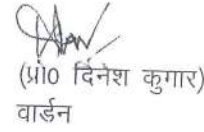 (प्रो0 दिनेश कुमार)
वार्डन